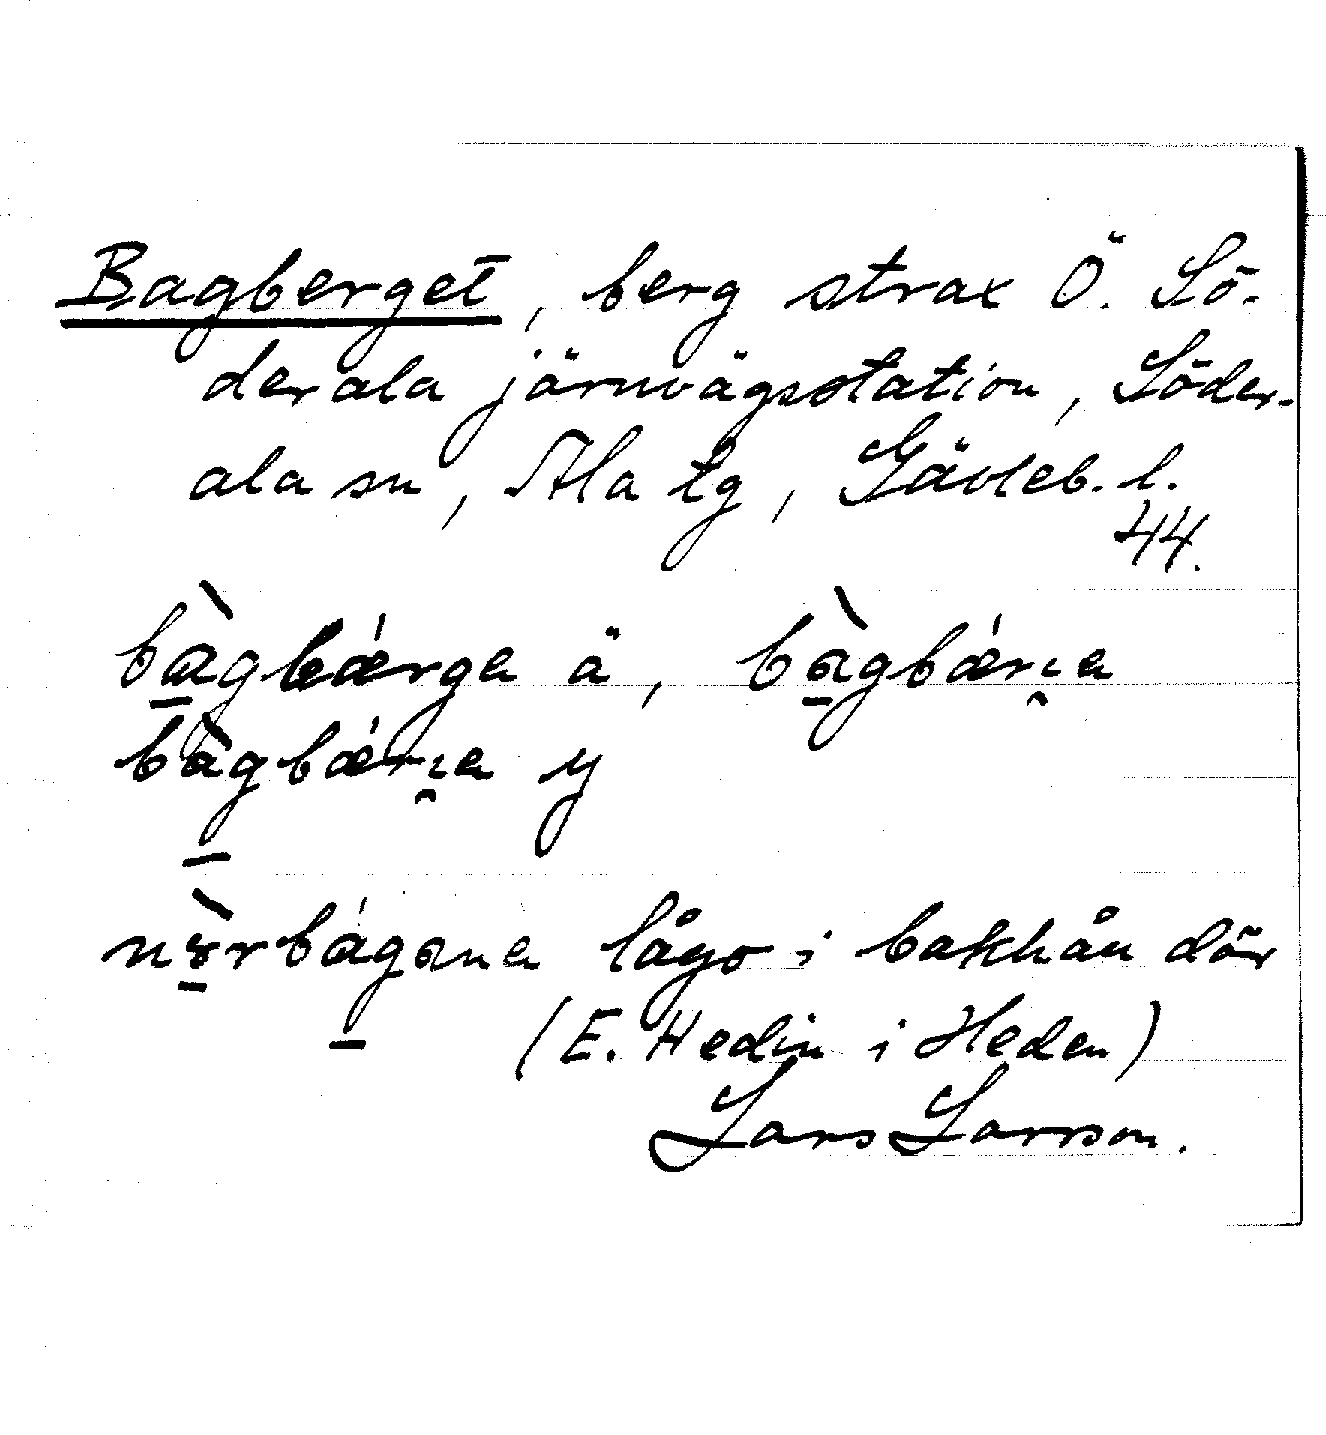 Bagberget, berg strax Ö. Sö-
derala järnvägsstation, Söder-
ala sn, Ala tg, Gävleb. l.
44.
bàgbǽrga ä, bàgbǽrı̯a
bàgbǽrı̯a y
lågo i bakhån där
(E. Hedin i Heden)
Lars Larsson.